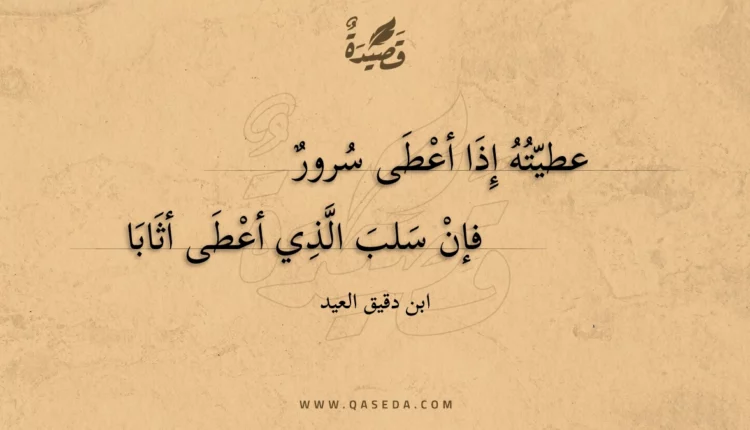 قَصِيدَةٌ
عطيّتُهُ إِذَا أعْطَى سُرورٌ
فإنْ سَلبَ الَّذِي أعْطَى أثَابَا
ابن دقيق العيد
WWW.QASEDA.COM